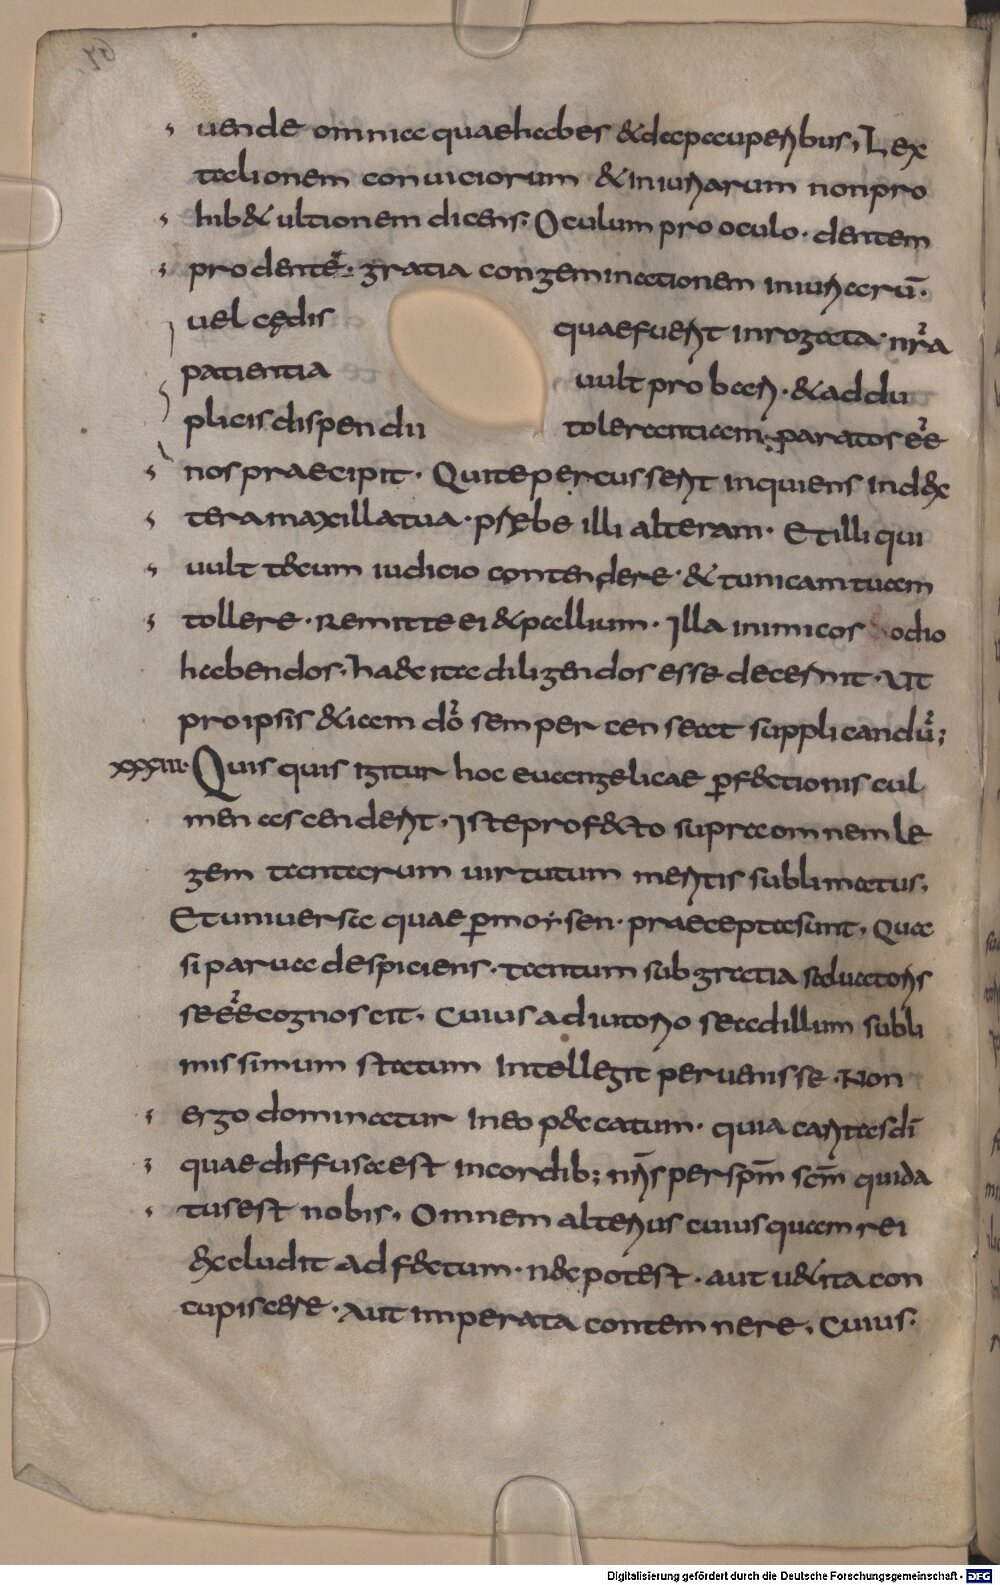 uende omnia quae habes & da pauperibus, Lex
talionem conuiciorum & iniuriarum non pro
hib& ultionem dicens. Oculum pro oculo. dentem
pro dente. gratia congeminationem iniuriarū.
uel cędis quae fuerit inrogata. nr̄a
patientia uult probari. & ad du
plicis dispendii tolerantiam. paratos eē
nos praecipit. Qui te percusserit inquiens in dex
tera maxilla tua. p̄rębe illi alteram. Et illi qui
uult tecum iudicio contendere. & tunicam tuam
tollere. Remitte ei & pallium. Illa inimicos odio
habendos. haec ita diligendos esse decernit. Ut
pro ipsis & iam dō semper censeat supplicandū;
xxxiii. Quisquis igitur hoc euangelicae ꝑfectionis cul
men ascenderit. Iste profecto supra omnem le
gem tantarum uirtutum meritis sublimatus.
Et uniuersa quae ꝑ moysen. praecepta sunt, Quasi
si parua despiciens. tantum sub gratia saluatoris
se eē cognoscit. Cuius adiutorio se ad illum subli
missimum statum intellegit peruenisse. Non
ergo dominatur in eo peccatum. quia caritas dī
quae diffusa est in cordib; nr̄is per spm̄ scm̄ qui da
tus est nobis. Omnem alterius cuiusquam rei
excludit adfectum. nec potest. aut uetita con
cupiscere. Aut imperata contemnere. Cuius.
Digitalisierung gefördert durch die Deutsche Forschungsgemeinschaft - DFG